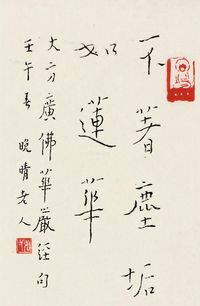 不著塵垢
如蓮華
大方廣佛華嚴經句
壬午春 晚晴老人